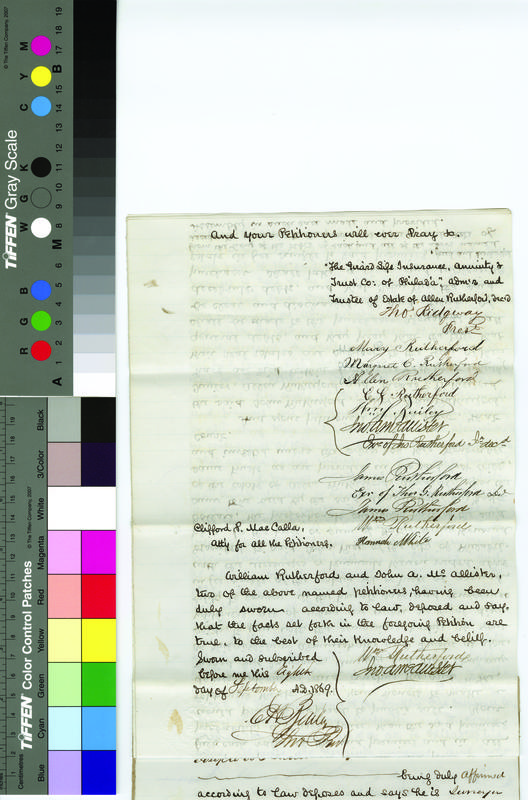 And your Petitioners will ever Pray &c.
"The Girard Life Insurance, Annuity &
Trust Co: of Philad'a", adm'rs and
Trustee of Estate of Allen Rutherford, dec'd
Tho. Ridgway
Prest
Mary Rutherford
Margaret C. Rutherford
Allen Rutherford
Jno. A. McAllister
Exr of Jno. Rutherford
James Rutherford
Exr of Thos. Rutherford
James Rutherford
Wm Rutherford
Clifford P. MacCalla,
Atty for all the Petitioners.
Hannah White
William Rutherford and John A. McAllister,
two of the above named petitioners, having been
duly sworn according to law, deposed and say,
that the facts set forth in the foregoing Petition are
true, to the best of their Knowledge and belief.
Sworn and subscribed
before me this eighth
day of Septemb. A.D. 1869.
Wm Rutherford
Jno. A. McAllister
being duly affirmed
according to law deposes and says he is Surveyor
TIFFEN Gray Scale
© The Tiffen Company, 2007
R G B W G K C Y M
A 1 2 3 4 5 6 M 8 9 10 11 12 13 14 15 B 17 18 19
TIFFEN Color Control Patches
© The Tiffen Company, 2007
Centimetres
Blue
Cyan
Green
Yellow
Red
Magenta
White
3/Color
Black